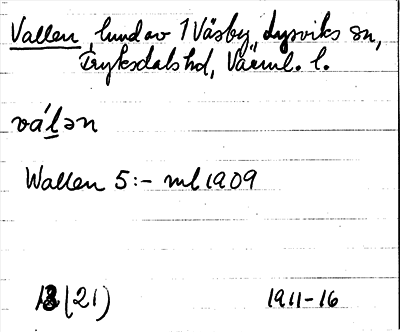 Vallen hund av 1 Väsby, Lysviks sn,
Fryksdals hd, Värml. l.
vá̱lən
Wallen 5:- ml 1909
13 (21) 1911-16